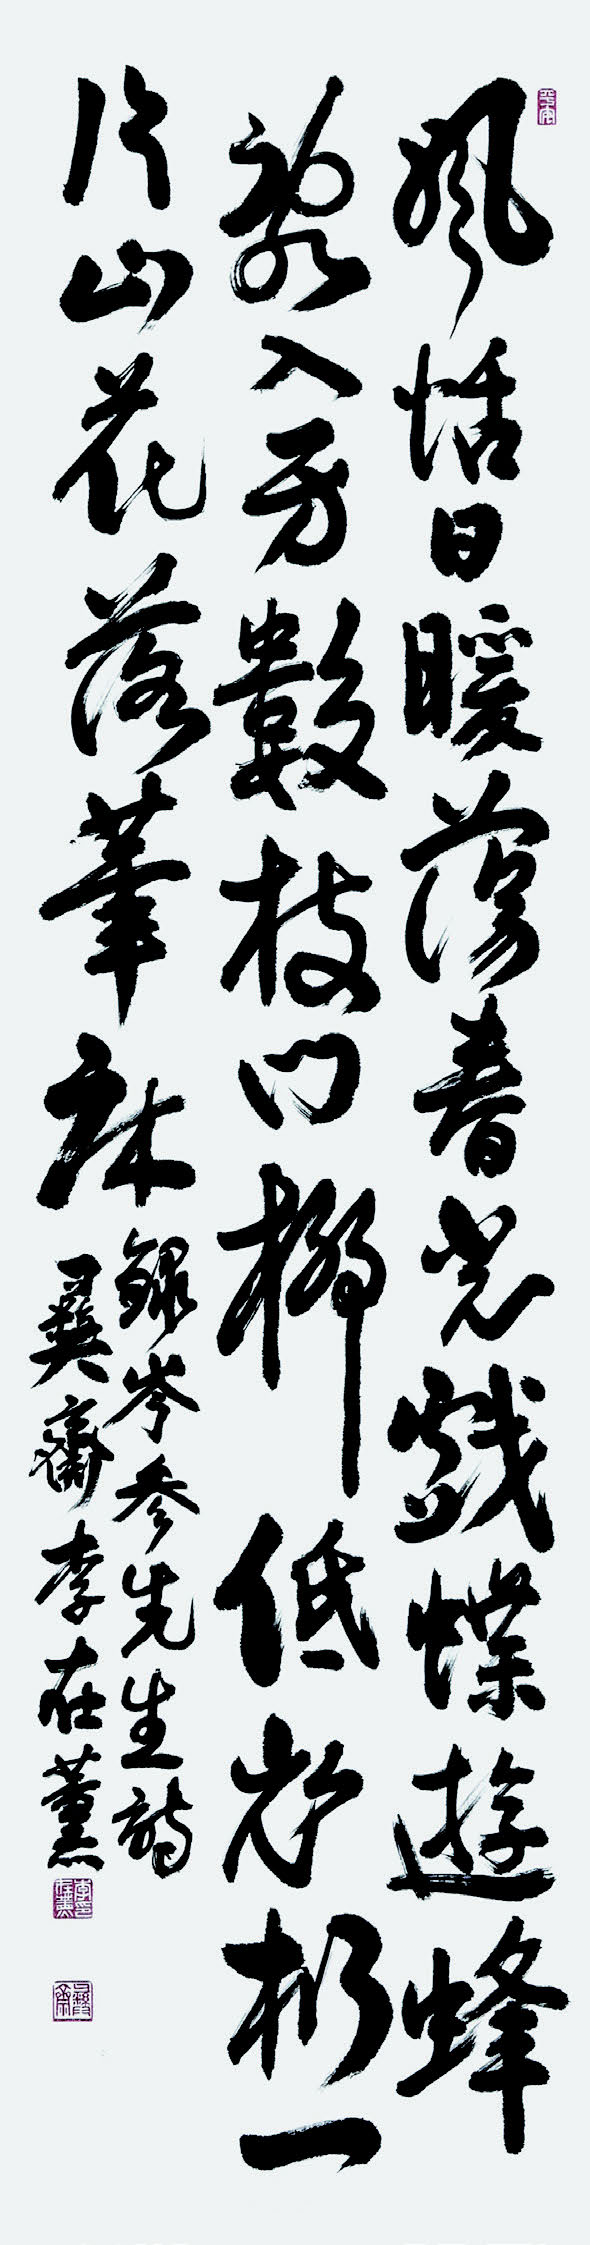 風恬日暖蕩春光戲蝶遊蜂
亂入房數枝門柳低衣桁一
片山花落筆床
錄岑參先生詩
彝齋李在薰